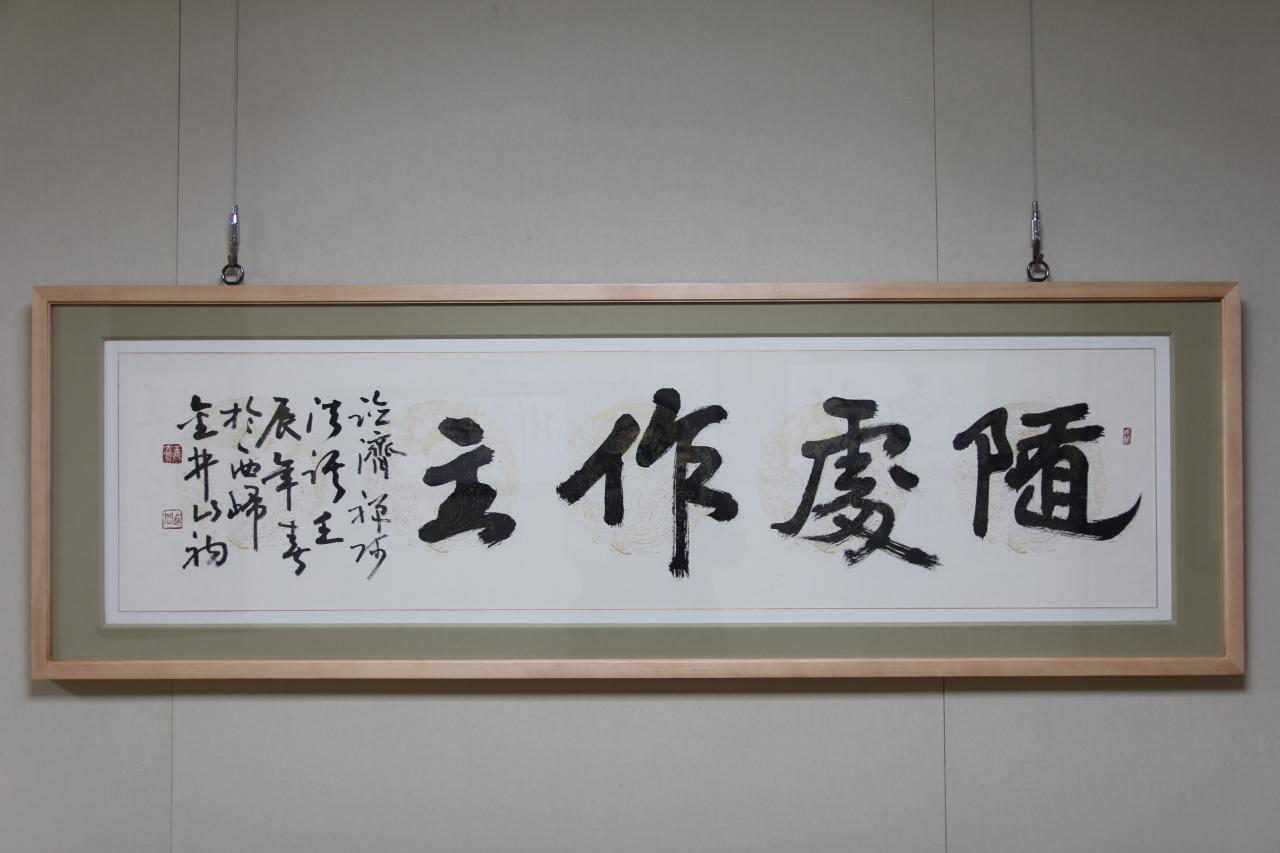 随處作主
臨濟禪師
法語壬
辰年春
於西歸
金井山衲